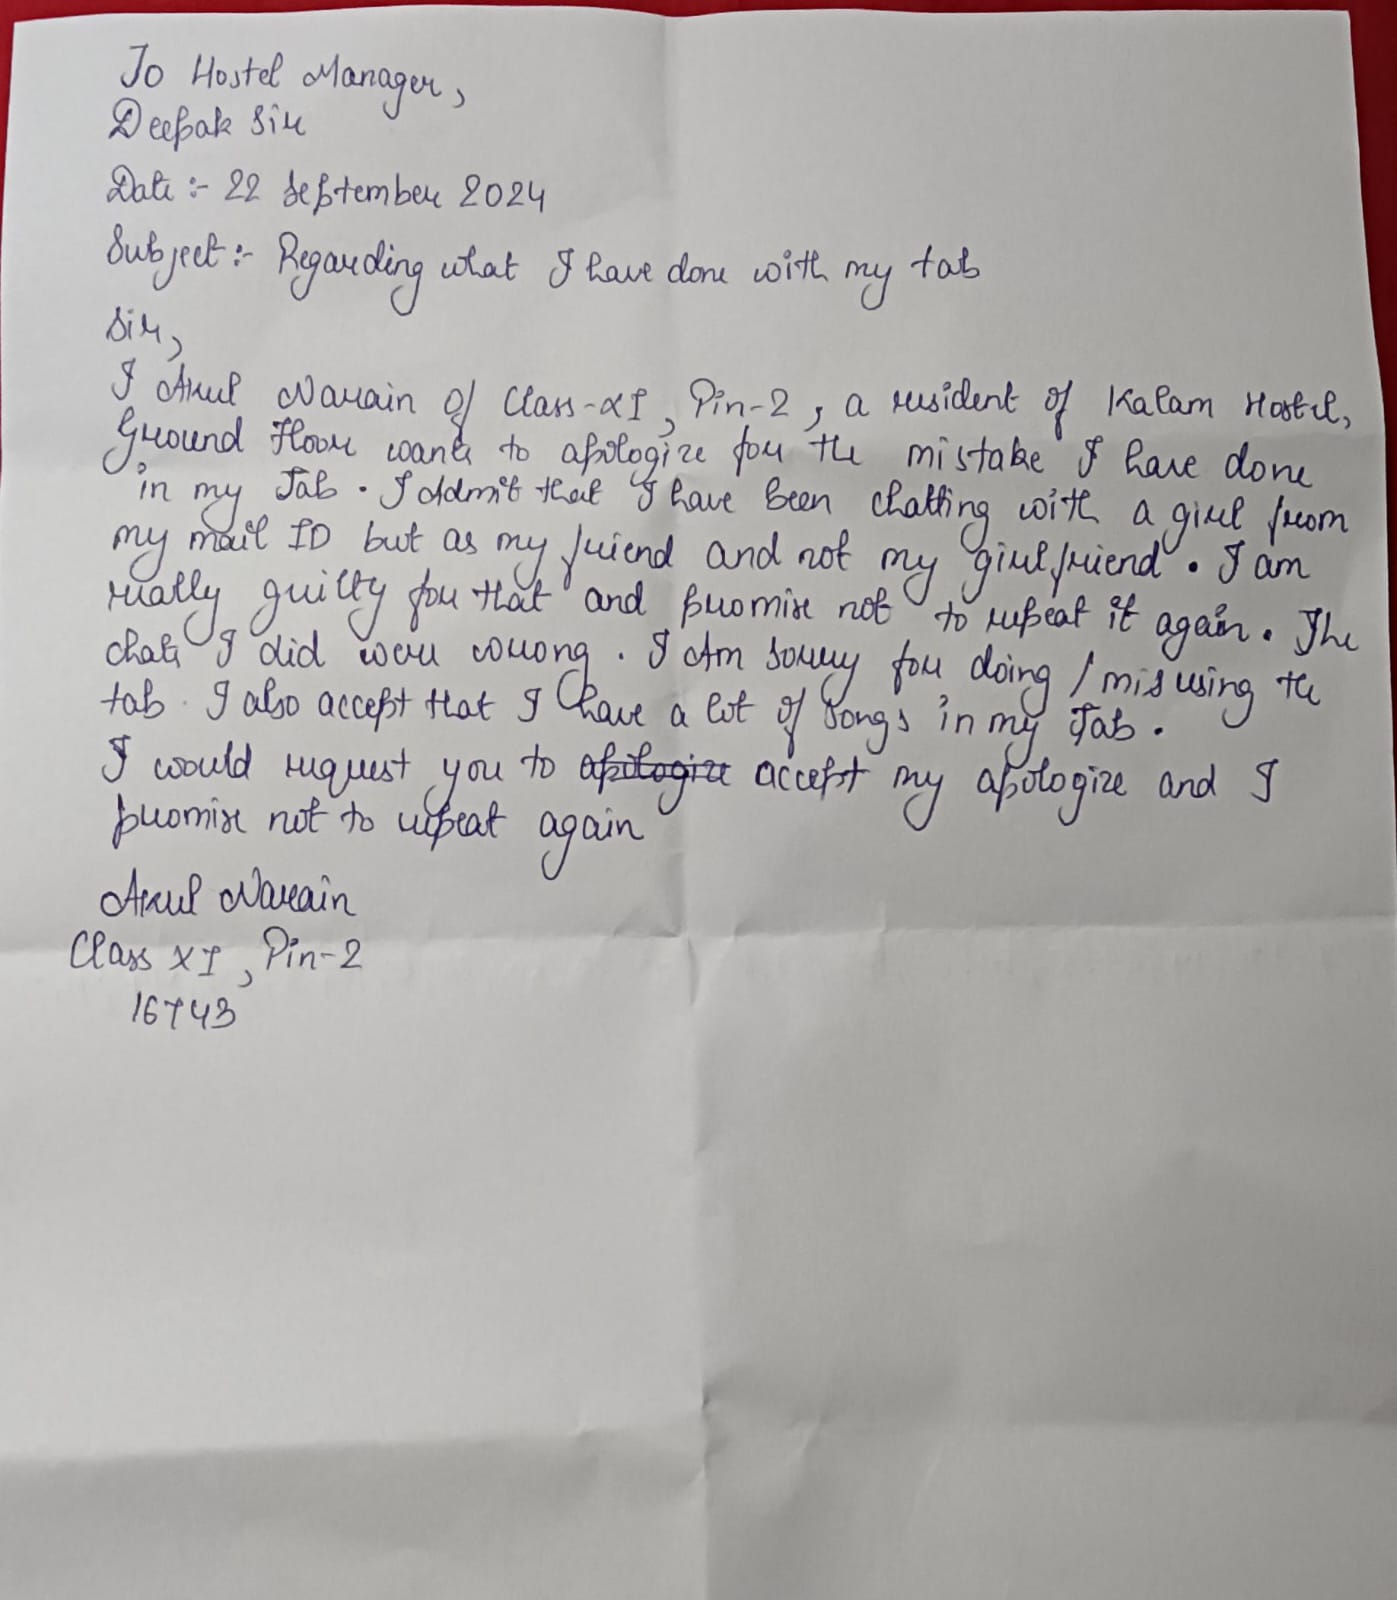 To Hostel Manager,
Deepak Sir
Date :- 22 September 2024
Subject :- Regarding what I have done with my tab
Sir,
I Arul Narain of Class-XI, Pin-2, a resident of Kalam Hostel,
Ground Floor wants to apologize for the mistake I have done
in my Tab. I Admit that I have been chatting with a girl from
my mail ID but as my friend and not my girlfriend. I am
really guilty for that and promise not to repeat it again. The
chats I did were wrong. I Am sorry for doing / misusing the
tab. I also accept that I have a lot of songs in my Tab.
I would request you to apologize accept my apologize and I
promise not to repeat again
Arul Narain
Class XI, Pin-2
16743